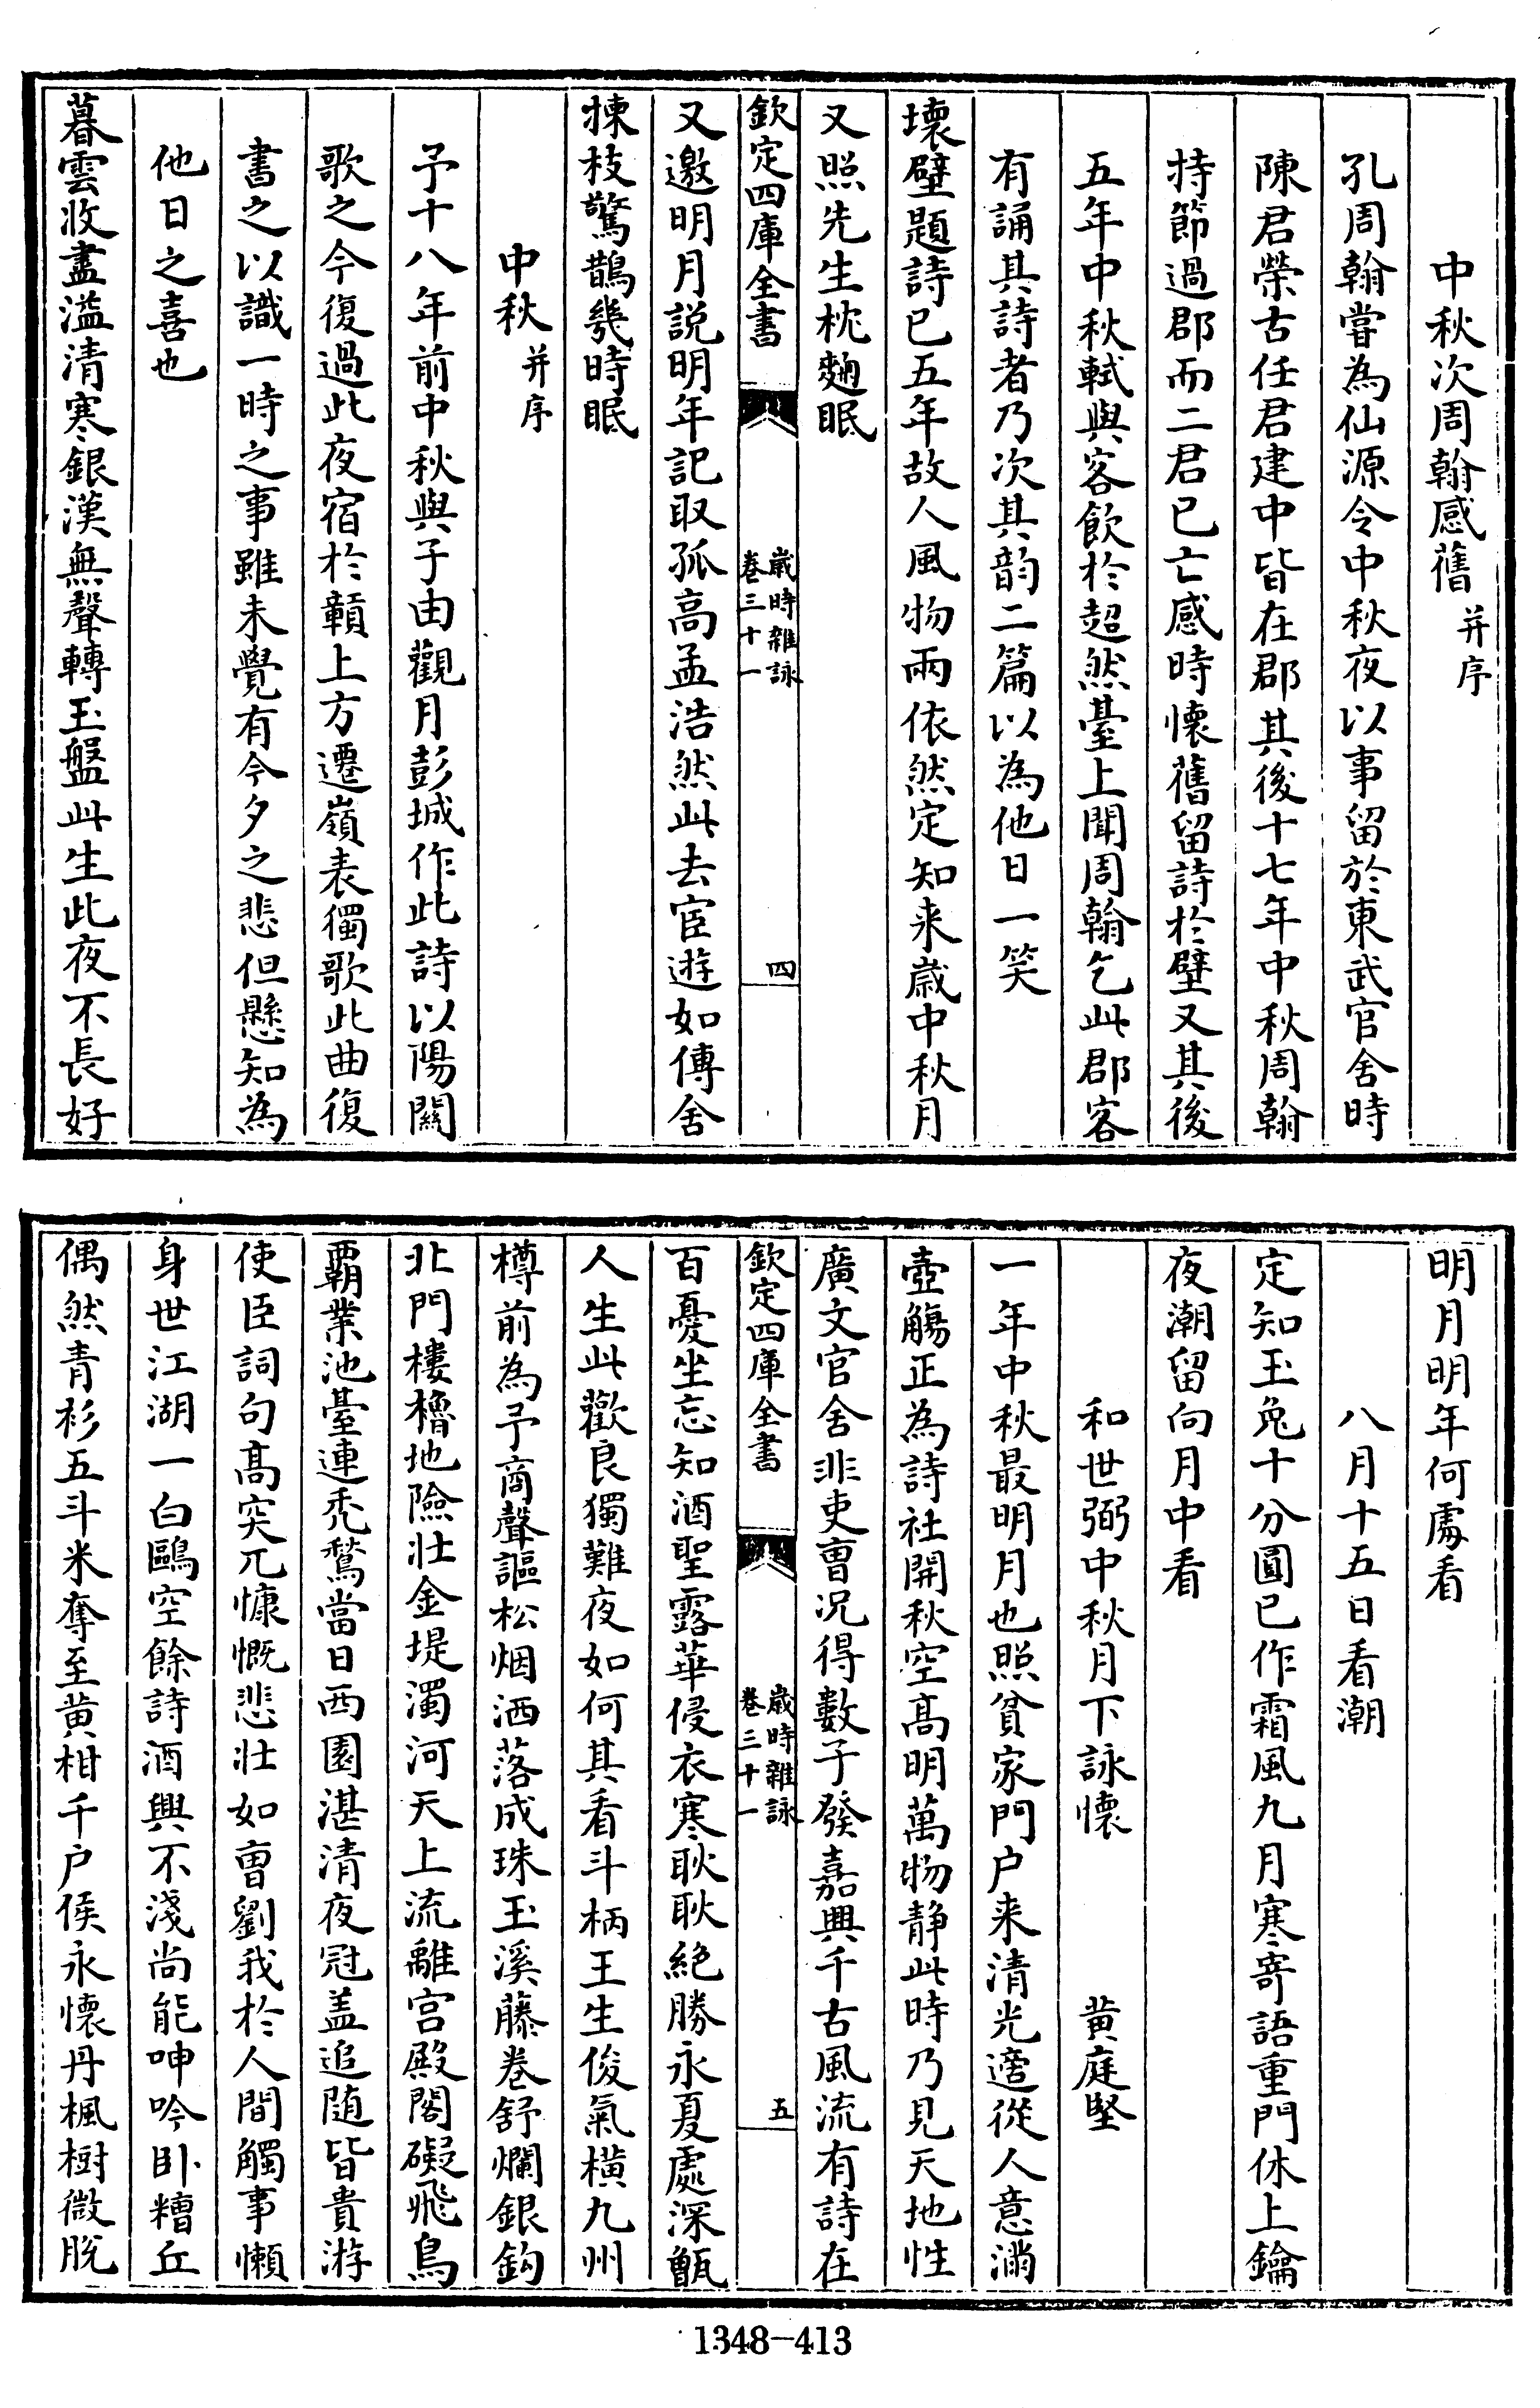 中秋次周翰感舊 并序
孔周翰嘗為仙源令中秋夜以事留於東武官舍時
陳君榮古任君建中皆在郡其後十七年中秋周翰
持節過郡而二君已亡感時懷舊留詩於壁又其後
五年中秋軾與客飲於超然臺上聞周翰乞此郡客
有誦其詩者乃次其韵二篇以為他日一笑
壞壁題詩已五年故人風物兩依然定知来歲中秋月
又照先生枕麴眠
欽定四庫全書
歲時雜詠
卷三十一
四
又邀明月説明年記取孤高孟浩然此去宦遊如傳舍
揀枝驚鵲幾時眠
中秋 并序
予十八年前中秋與子由觀月彭城作此詩以陽關
歌之今復過此夜宿於贛上方遷嶺表獨歌此曲復
書之以識一時之事雖未覺有今夕之悲但懸知為
他日之喜也
暮雲收盡溢清寒銀漢無聲轉玉盤此生此夜不長好
明月明年何處看
八月十五日看潮
定知玉兔十分圓已作霜風九月寒寄語重門休上鑰
夜潮留向月中看
和世弼中秋月下詠懷 黄庭堅
一年中秋最明月也照貧家門户来清光適從人意滿
壺觴正為詩社開秋空髙明萬物静此時乃見天地性
廣文官舍非吏曹况得數子發嘉興千古風流有詩在
欽定四庫全書
歲時雜詠
卷三十一
五
百憂坐忘知酒聖露華侵衣寒耿耿絶勝永夏處深甑
人生此歡良獨難夜如何其看斗柄王生俊氣横九州
樽前為予商聲謳松烟洒落成珠玉溪藤卷舒爛銀鈎
北門樓櫓地險壯金堤濁河天上流離宫殿閣礙飛鳥
覇業池臺連秃鶖當日西園湛清夜冠盖追随皆貴游
使臣詞句髙突兀慷慨悲壯如曹劉我於人間觸事懶
身世江湖一白鷗空餘詩酒興不淺尚能呻吟卧糟丘
偶然青衫五斗米奪至黄柑千户侯永懷丹楓樹微脱
1348-413